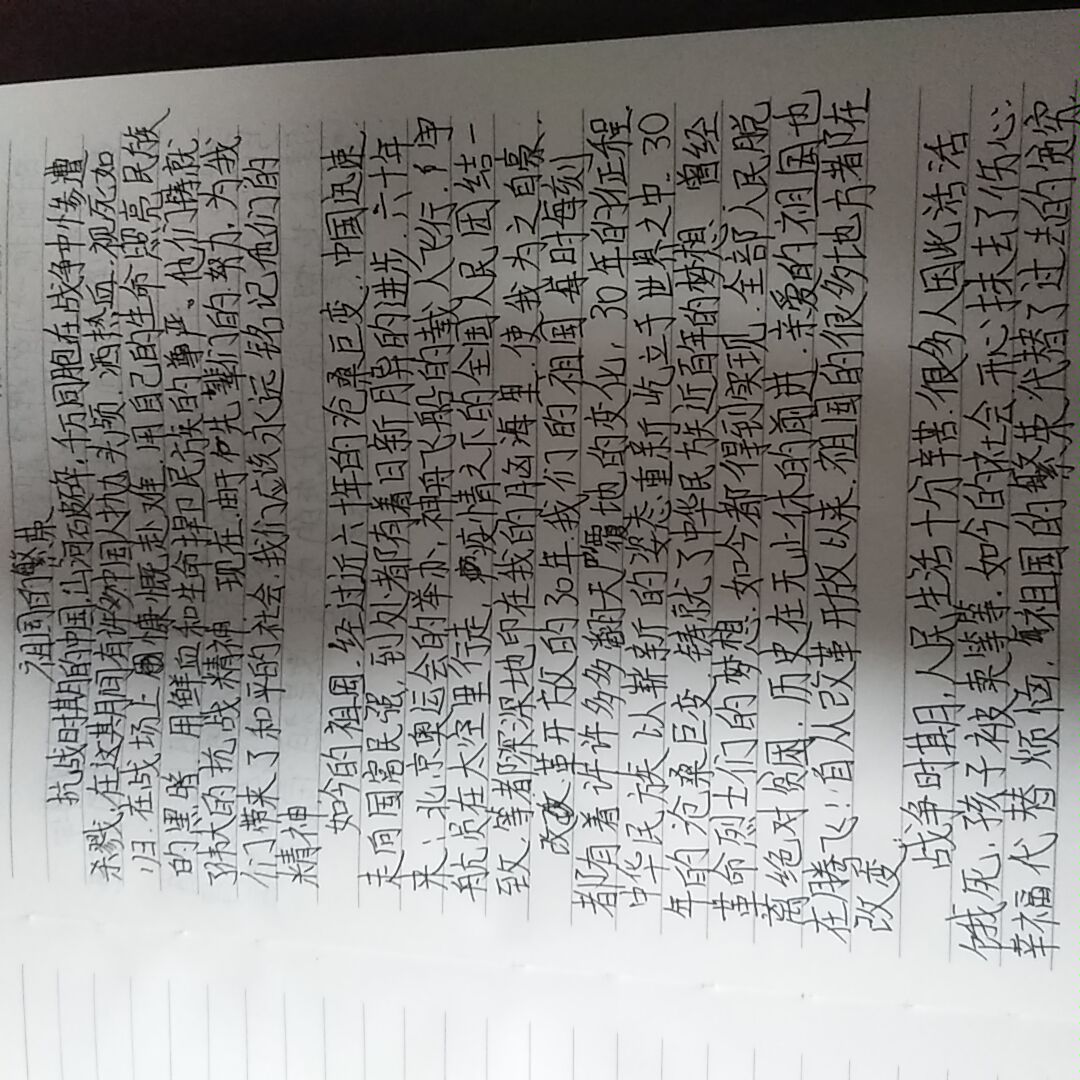 祖国的繁荣
抗战时期的中国,山河破碎,千万同胞在战争中惨遭
杀戮,在这其间有许多中国人抛头颅.洒热血.视死如
归.在战场上慷慨赴难.用自己的生命照亮民族
的黑暗.用鲜血和生命捍卫民族的尊严。他们铸就
伟大的抗战精神.现在.由于先辈们的努力,为我
们带来了和平的社会.我们应该永远铭记他们的
精神
如今的祖国.经过近六十年的沧桑巨变.中国迅速
走向国富民强.到处都有着日新月异的进步.六十年
来:北京奥运会的举办,神舟飞船的载人飞行.宇
航员在太空里行走.疫情之下的全国人民团结一
致.等都深深地印在我的脑海里.使我为之自豪.
改革开放的30年.我们的祖国每时每刻
都有着许许多多翻天覆地的变化,30年的征程.
中华民族以崭新的姿态重新屹立于世界之中.30
年的沧桑巨变.铸就了中华民族近百年的梦想.曾经
革命烈士们的梦想.如今都得到实现.全部人民脱
离绝对贫困.历史在无止休的前进.亲爱的祖国也
在腾飞!自从改革开放以来.祖国的很多地方都在
改变.
战争时期,人民生活十分辛苦.很多人因此活活
饿死.孩子被卖等等.如今的社会.开心抹去了伤心.
幸福代替烦恼.祖国的繁荣代替了过去的贫穷.